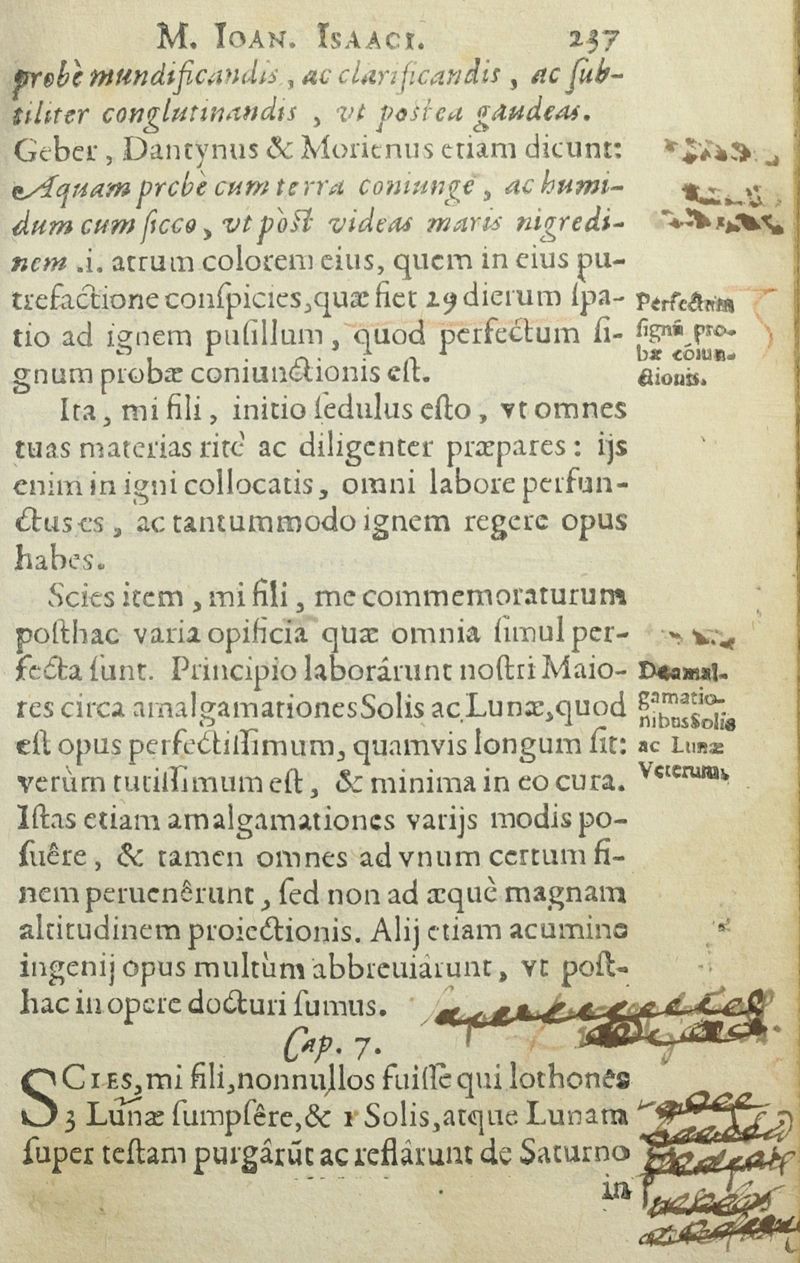 M. IOAN. ISAACI. 237
probè mundificandis, ac clarificandis, ac ſub-
tiliter conglutinandis, vt poſtea gaudeas.
Geber, Dantynus & Morienus etiam dicunt:
Aquam probè cum terra coniunge, ac humi-
dum cum ſicco, vt pòſt videas maris nigredi-
nem .i. atrum colorem eius, quem in eius pu-
trefactione conſpicies, quæ fiet 29 dierum ſpa-
tio ad ignem puſillum, quod perfectum ſi-
gnum probæ coniunctionis eſt.
Perfectum
ſignũ pro-
bæ cõiun-
ctionis.
Ita, mi fili, initio ſedulus eſto, vt omnes
tuas materias ritè ac diligenter præpares: ijs
enim in igni collocatis, omni labore perfun-
ctus es, ac tantummodo ignem regere opus
habes.
Scies item, mi fili, me commemoraturum
poſthac varia opificia quæ omnia ſimul per-
fecta ſunt. Principio laborârunt noſtri Maio-
res circa amalgamationes Solis ac Lunæ, quod
eſt opus perfectiſſimum, quamvis longum ſit:
verùm tutiſſimum eſt, & minima in eo cura.
De amal-
gamatio-
nibus Solis
ac Lunæ
Veterum.
Iſtas etiam amalgamationes varijs modis po-
ſuêre, & tamen omnes ad vnum certum fi-
nem peruenêrunt, ſed non ad æquè magnam
altitudinem proiectionis. Alij etiam acumine
ingenij opus multùm abbreuiârunt, vt poſt-
hac in opere docturi ſumus.
Cap. 7.
SCIES, mi fili, nonnullos fuiſſe qui lothones
3 Lunæ ſumpſêre, & 1 Solis, atque Lunam
ſuper teſtam purgârũt ac reflârunt de Saturno
in